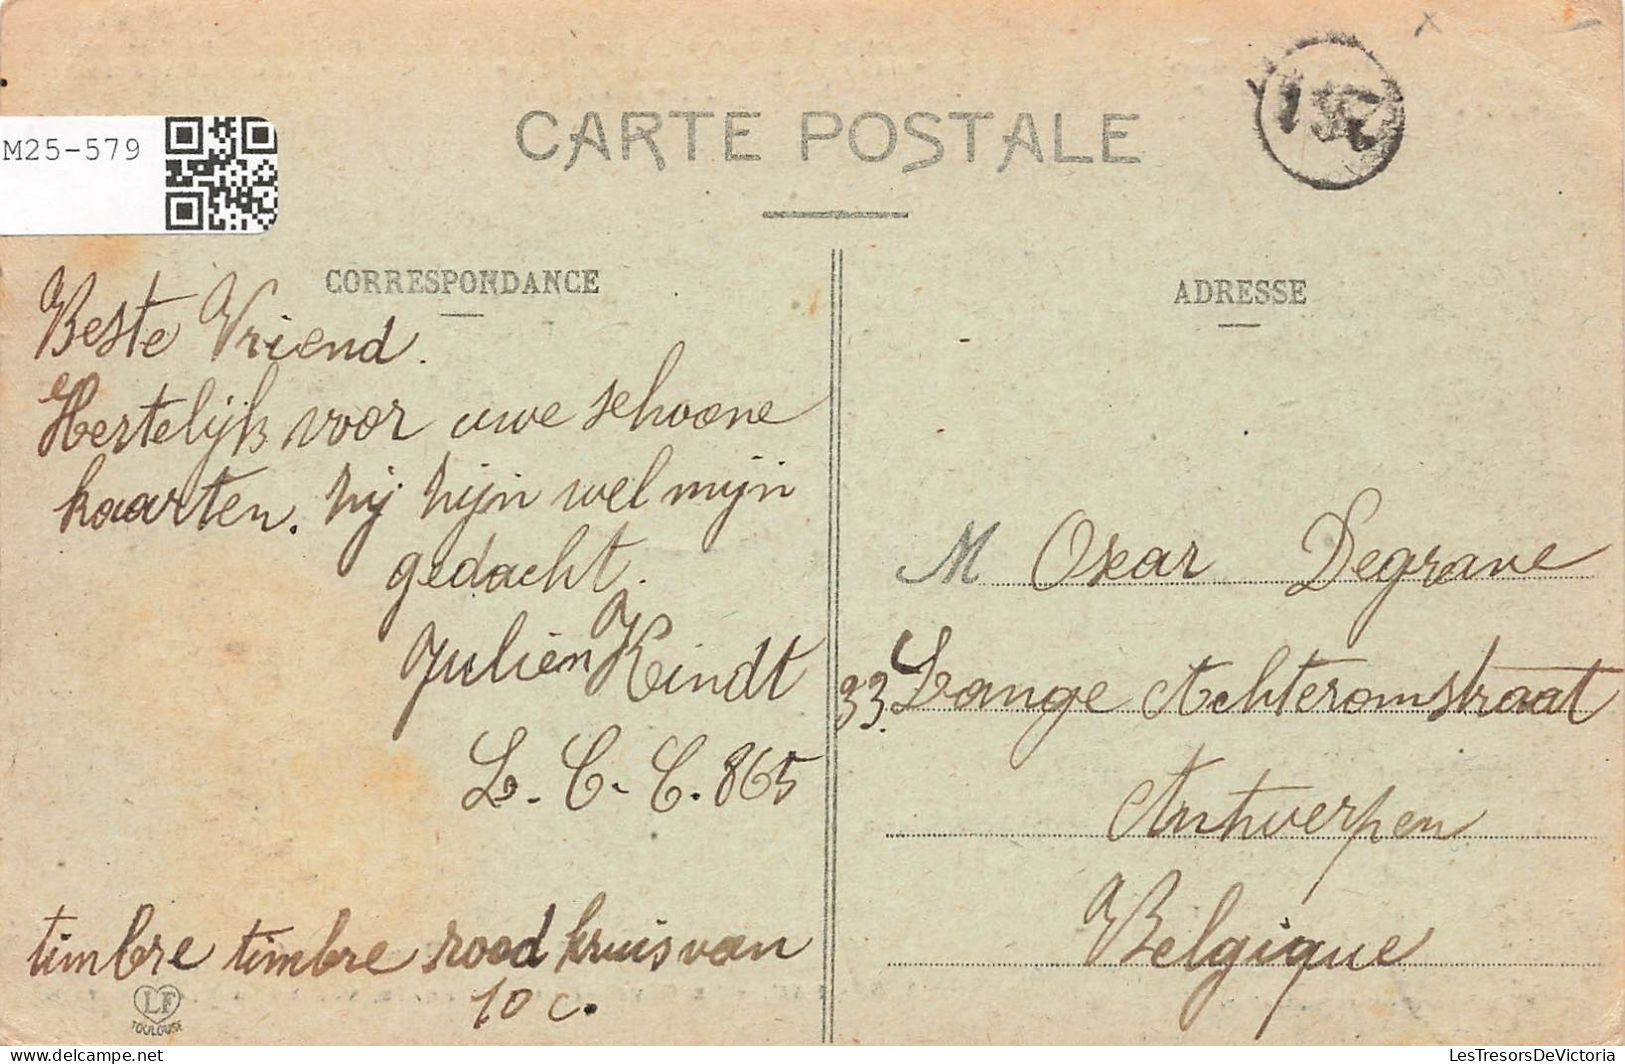 M25-579
CARTE POSTALE
137
CORRESPONDANCE
Beste Vriend.
Hertelijk voor uwe schoone
kaarten. hij hijn wel mijn
gedacht.
Julien Kindt
L. C. C. 865
timbre timbre rood kruis van
10 c.
LF
TOULOUSE
ADRESSE
M Oscar Degrave
33. Lange Achteromstraat
Antwerpen
Belgique
LesTresorsDeVictoria